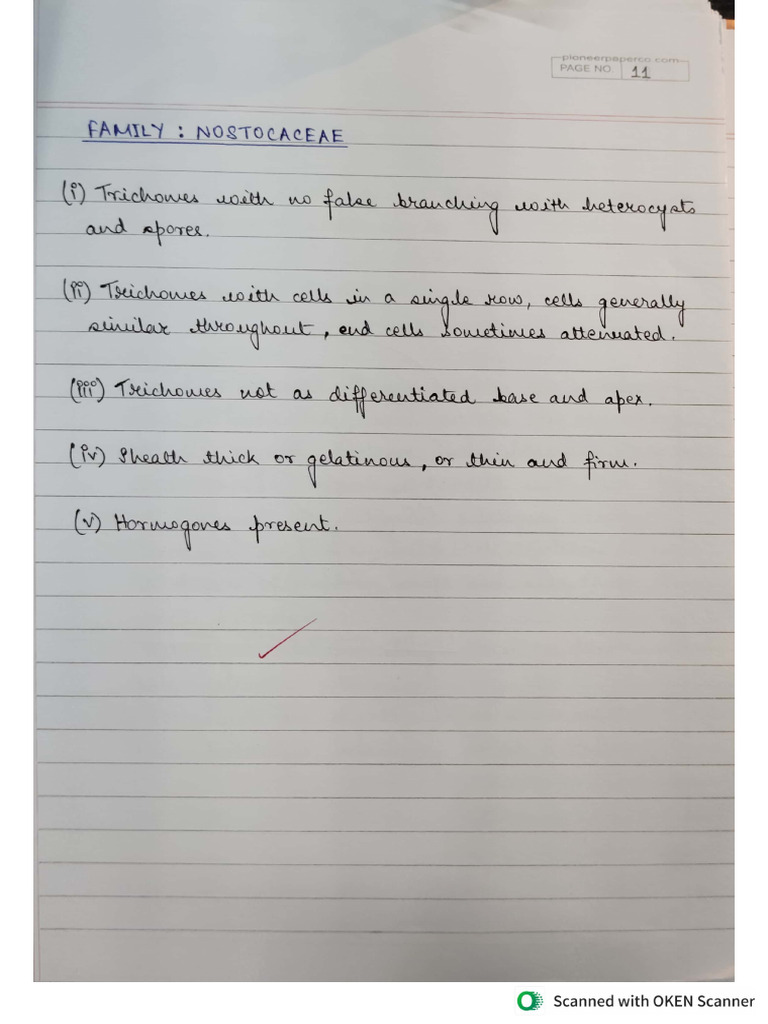 pioneerpaperco.com
PAGE NO. 11
FAMILY : NOSTOCACEAE
(i) Trichomes with no false branching with heterocysts
and spores.
(ii) Trichomes with cells in a single row, cells generally
similar throughout, end cells sometimes attenuated.
(iii) Trichomes not as differentiated base and apex.
(iv) Sheath thick or gelatinous, or thin and firm.
(v) Hormogones present.
Scanned with OKEN Scanner